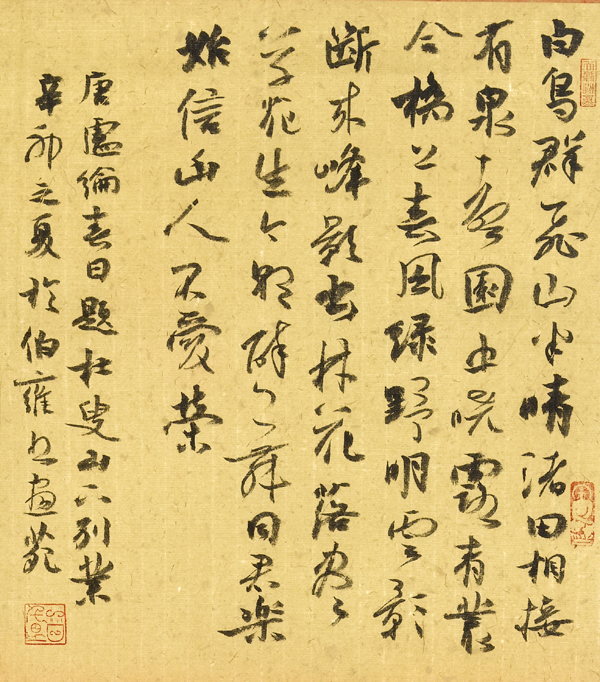 白鳥群飛山半晴渚田相接
有泉聲園中曉露青叢
合橋上春風綠野明雲影
斷來峰影出林花落盡
草花生今朝醉舞同君樂
始信幽人不愛榮
唐盧綸春日題杜叟山下別業
辛卯之夏於伯雍書畫苑